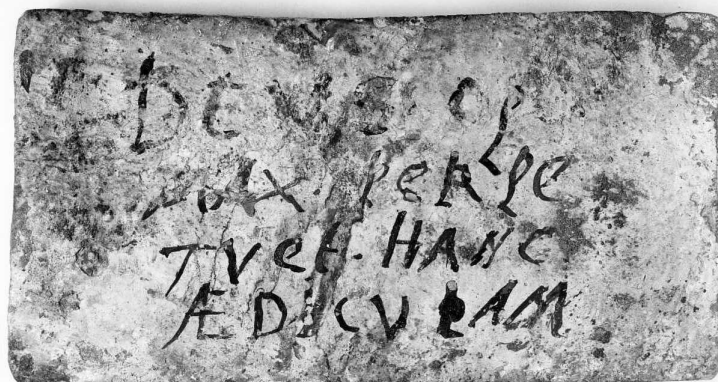 DEVS OP
MAX · PERPE
TVET · HANC
ÆDICVLAM